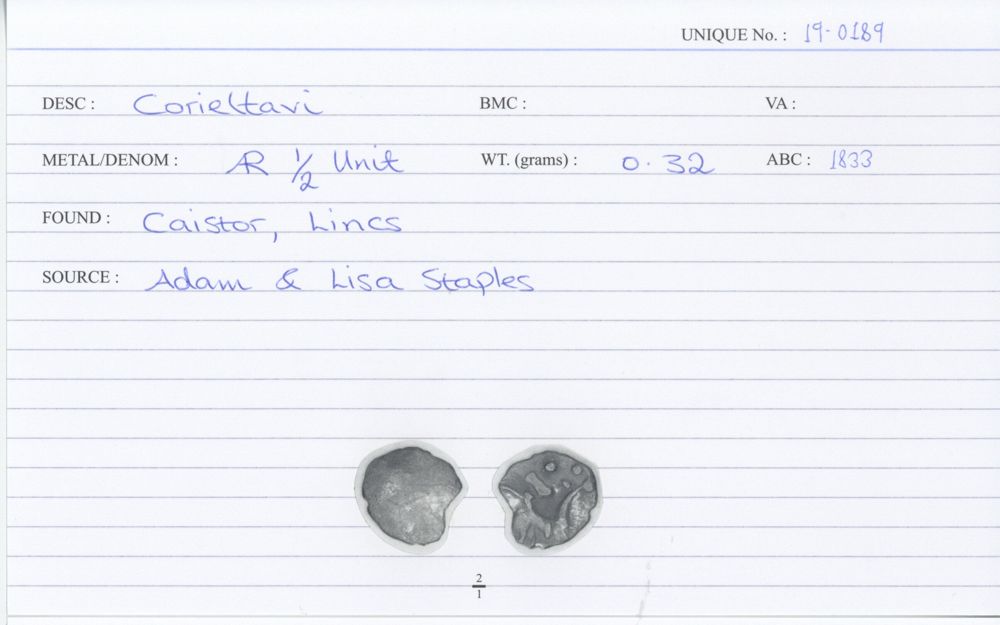 UNIQUE No. : 19-0189
DESC : Corieltavi BMC : VA :
METAL/DENOM : AR ½ Unit WT. (grams) : 0.32 ABC : 1833
FOUND : Caistor, Lincs
SOURCE : Adam & Lisa Staples
2
1